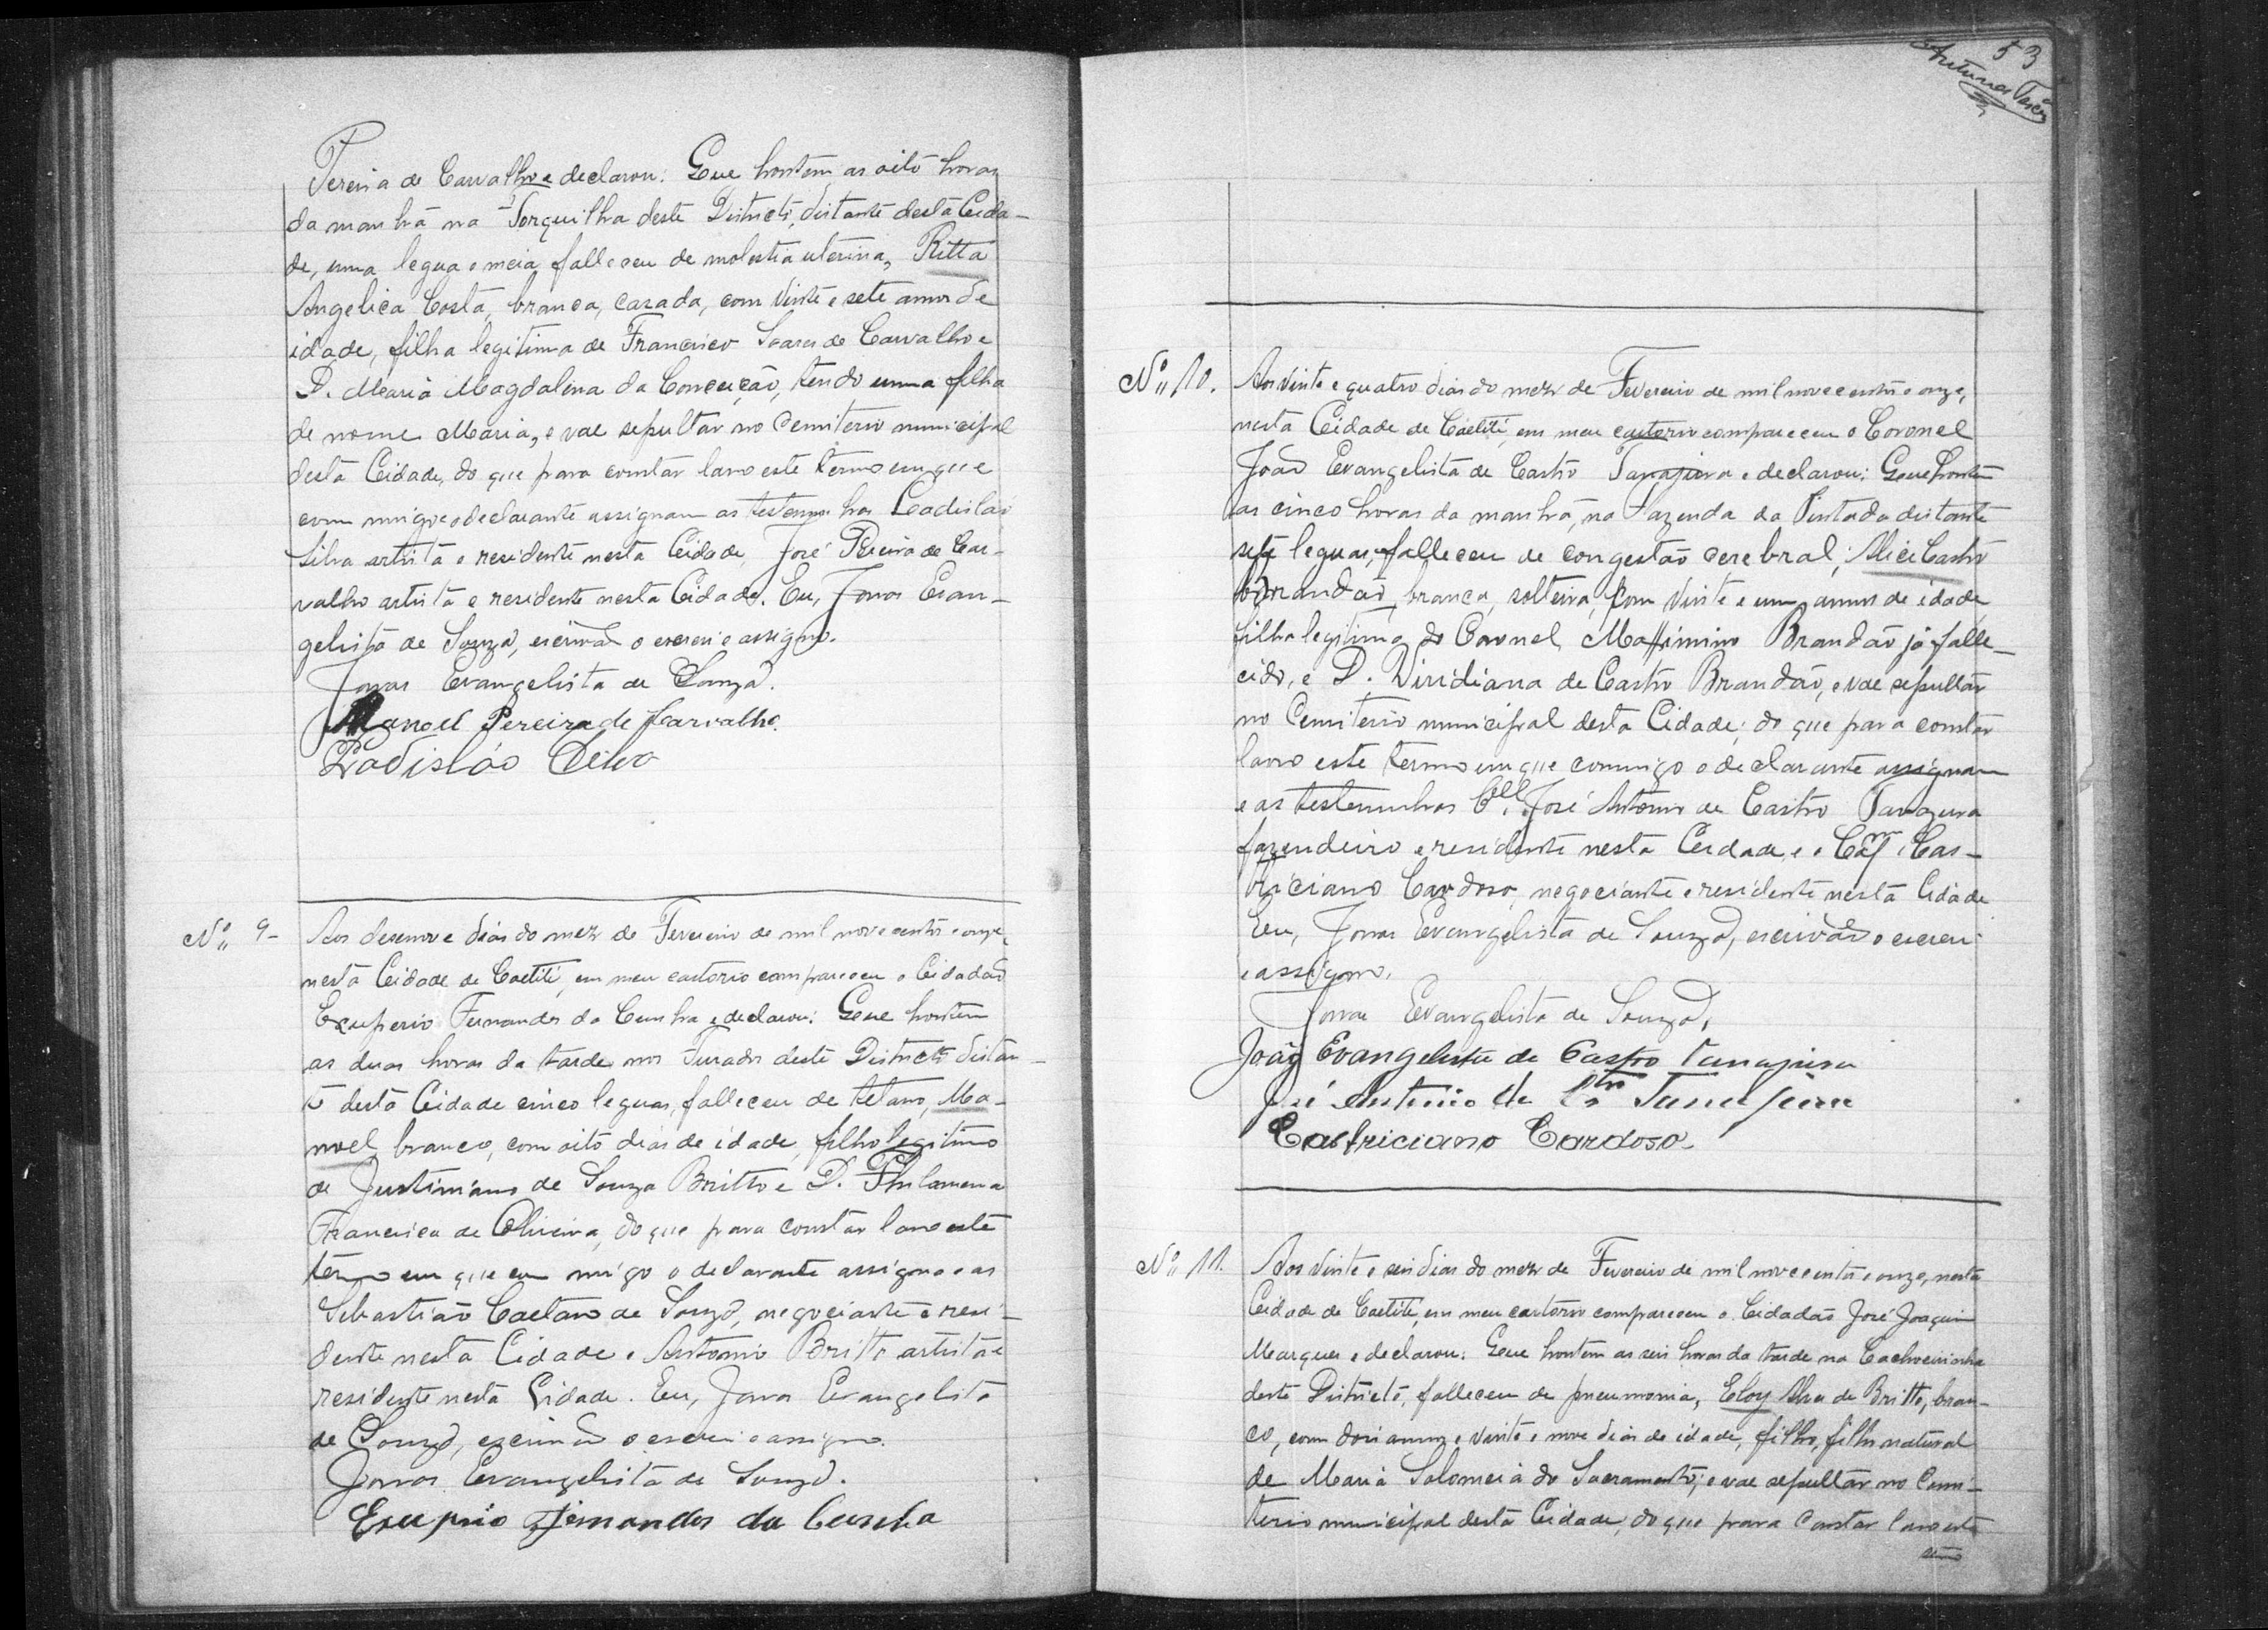 Pereira de Carvalho e declarou: Que hontem as oito horas
da manhã na Forquilha deste Districto, distante desta Cida-
de, uma legua e meia falleceu de molestia uterina, Ritta
Angelica Costa, branca, cazada, com vinte e sete annos de
idade, filha legitima de Francisco Soares de Carvalho e
D. Maria Magdalena da Conceição, tendo uma filha
de nome Maria, e vae sepultar no Cemiterio municipal
desta Cidade, do que para constar lavro este termo em que
commigo o declarante assignam as testemunhas Ladisláo
Silva artista e residente nesta Cidade, José Pereira de Car-
valho artista e residente nesta Cidade. Eu, Jonas Evan-
gelista de Souza, escrivão o escrevi e assigno.
Jonas Evangelista de Souza.
Manoel Pereira de Carvalho.
Ladisláo Silva
Nº 9-
Aos desenove dias do mez de Fevereiro de mil novecentos e onze,
nesta Cidade de Caetité, em meu cartorio compareceu o Cidadão
Exuperio Fernandes da Cunha e declarou: Que hontem
as duas horas da tarde nos Furados deste Districto distan-
te desta Cidade cinco leguas, falleceu de tetano, Ma-
noel, branco, com oito dias de idade, filho legitimo
de Justiniano de Souza Britto e D. Philomena
Francisca de Oliveira, do que para constar lavro este
termo em que commigo o declarante assigno e as
Sebastião Caetano de Souza, negociante e resi-
dente nesta Cidade e Antonio Britto artista e
residente nesta Cidade. Eu, Jonas Evangelista
de Souza, escrivão o escrevi e assigno.
Jonas Evangelista de Souza.
Exuprio Fernandes da Cunha
53
Antunes
Nº 10.
Aos vinte e quatro dias do mez de Fevereiro de mil novecentos e onze,
nesta Cidade de Caetité, em meu cartorio compareceu o Coronel
João Evangelista de Castro Tanajura e declarou: Que hontem
as cinco horas da manhã, na Fazenda da Pintada distante
sete leguas, falleceu de congestão cerebral, Alice Castro
Brandão, branca, solteira, com vinte e um annos de idade
filha legitima do Coronel Maximino Brandão já falle-
cido, e D. Viridiana de Castro Brandão, e vae sepultar
no Cemiterio municipal desta Cidade; do que para constar
lavro este termo em que commigo o declarante assignam
e as testemunhas Cel. José Antonio de Castro Tanajura
fazendeiro e residente nesta Cidade, e o Capm. Cas-
triciano Cardoso, negociante e residente nesta Cidade
Eu, Jonas Evangelista de Souza, escrivão o escrevi
e assigno.
Jonas Evangelista de Souza,
João Evangelista de Castro Tanajura
José Antonio de Cstro Tanajura
Castriciano Cardoso
Nº 11.
Aos vinte e seis dias do mez de Fevereiro de mil novecentos e onze, nesta
Cidade de Caetité, em meu cartorio compareceu o Cidadão José Joaquim
Marques e declarou: Que hontem as seis horas da tarde na Cachoeirinha
deste Districto, falleceu de pneumonia, Eloy Alves de Britto, bran-
co, com dois annos e vinte e nove dias de idade, filho, filho natural
de Maria Salomeia do Sacramento; e vae sepultar no Cemi-
terio municipal desta Cidade, do que para constar lavro este